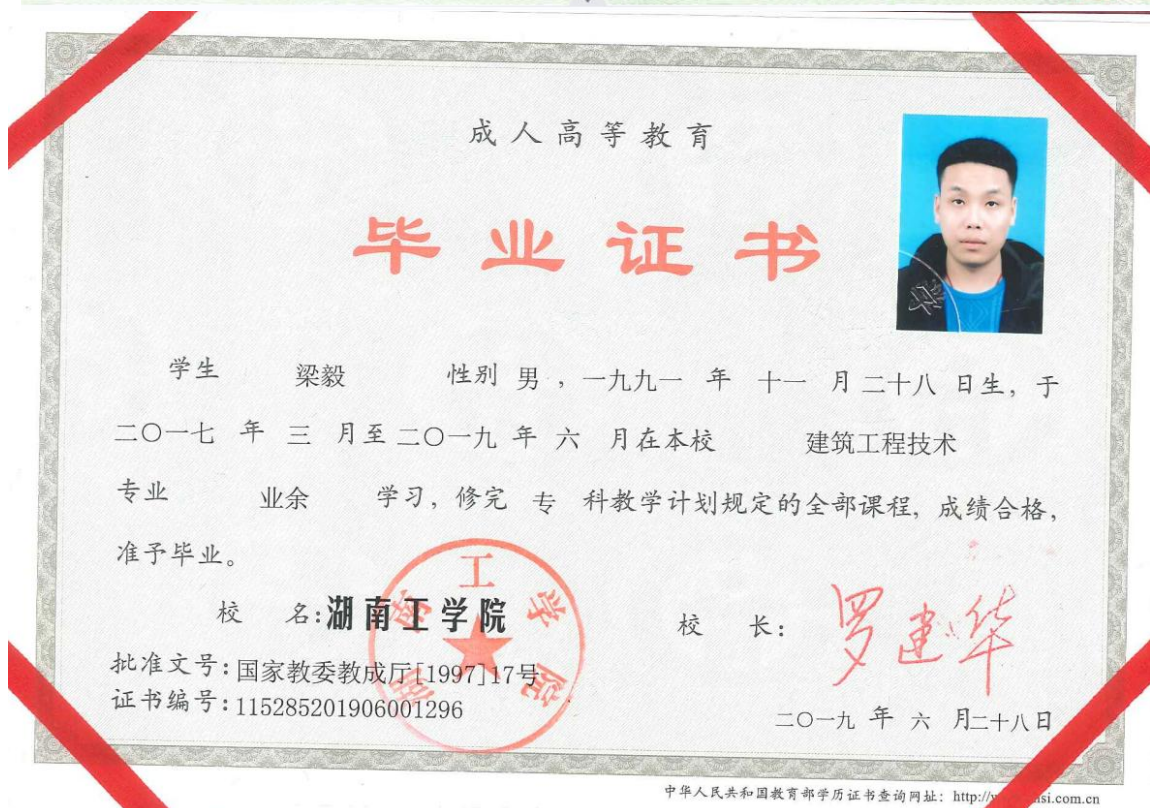 成人高等教育
毕业证书
学生 梁毅 性别 男 ，一九九一 年 十一 月 二十八 日生，于
二〇一七 年 三 月至 二〇一九 年 六 月在本校 建筑工程技术
专业 业余 学习，修完 专 科教学计划规定的全部课程，成绩合格，
准予毕业。
校 名：湖南工学院
湖南工学院
校 长：罗建华
批准文号：国家教委教成厅[1997]17号
证书编号：115285201906001296
二〇一九 年 六 月二十八日
中华人民共和国教育部学历证书查询网址：http://
si.com.cn